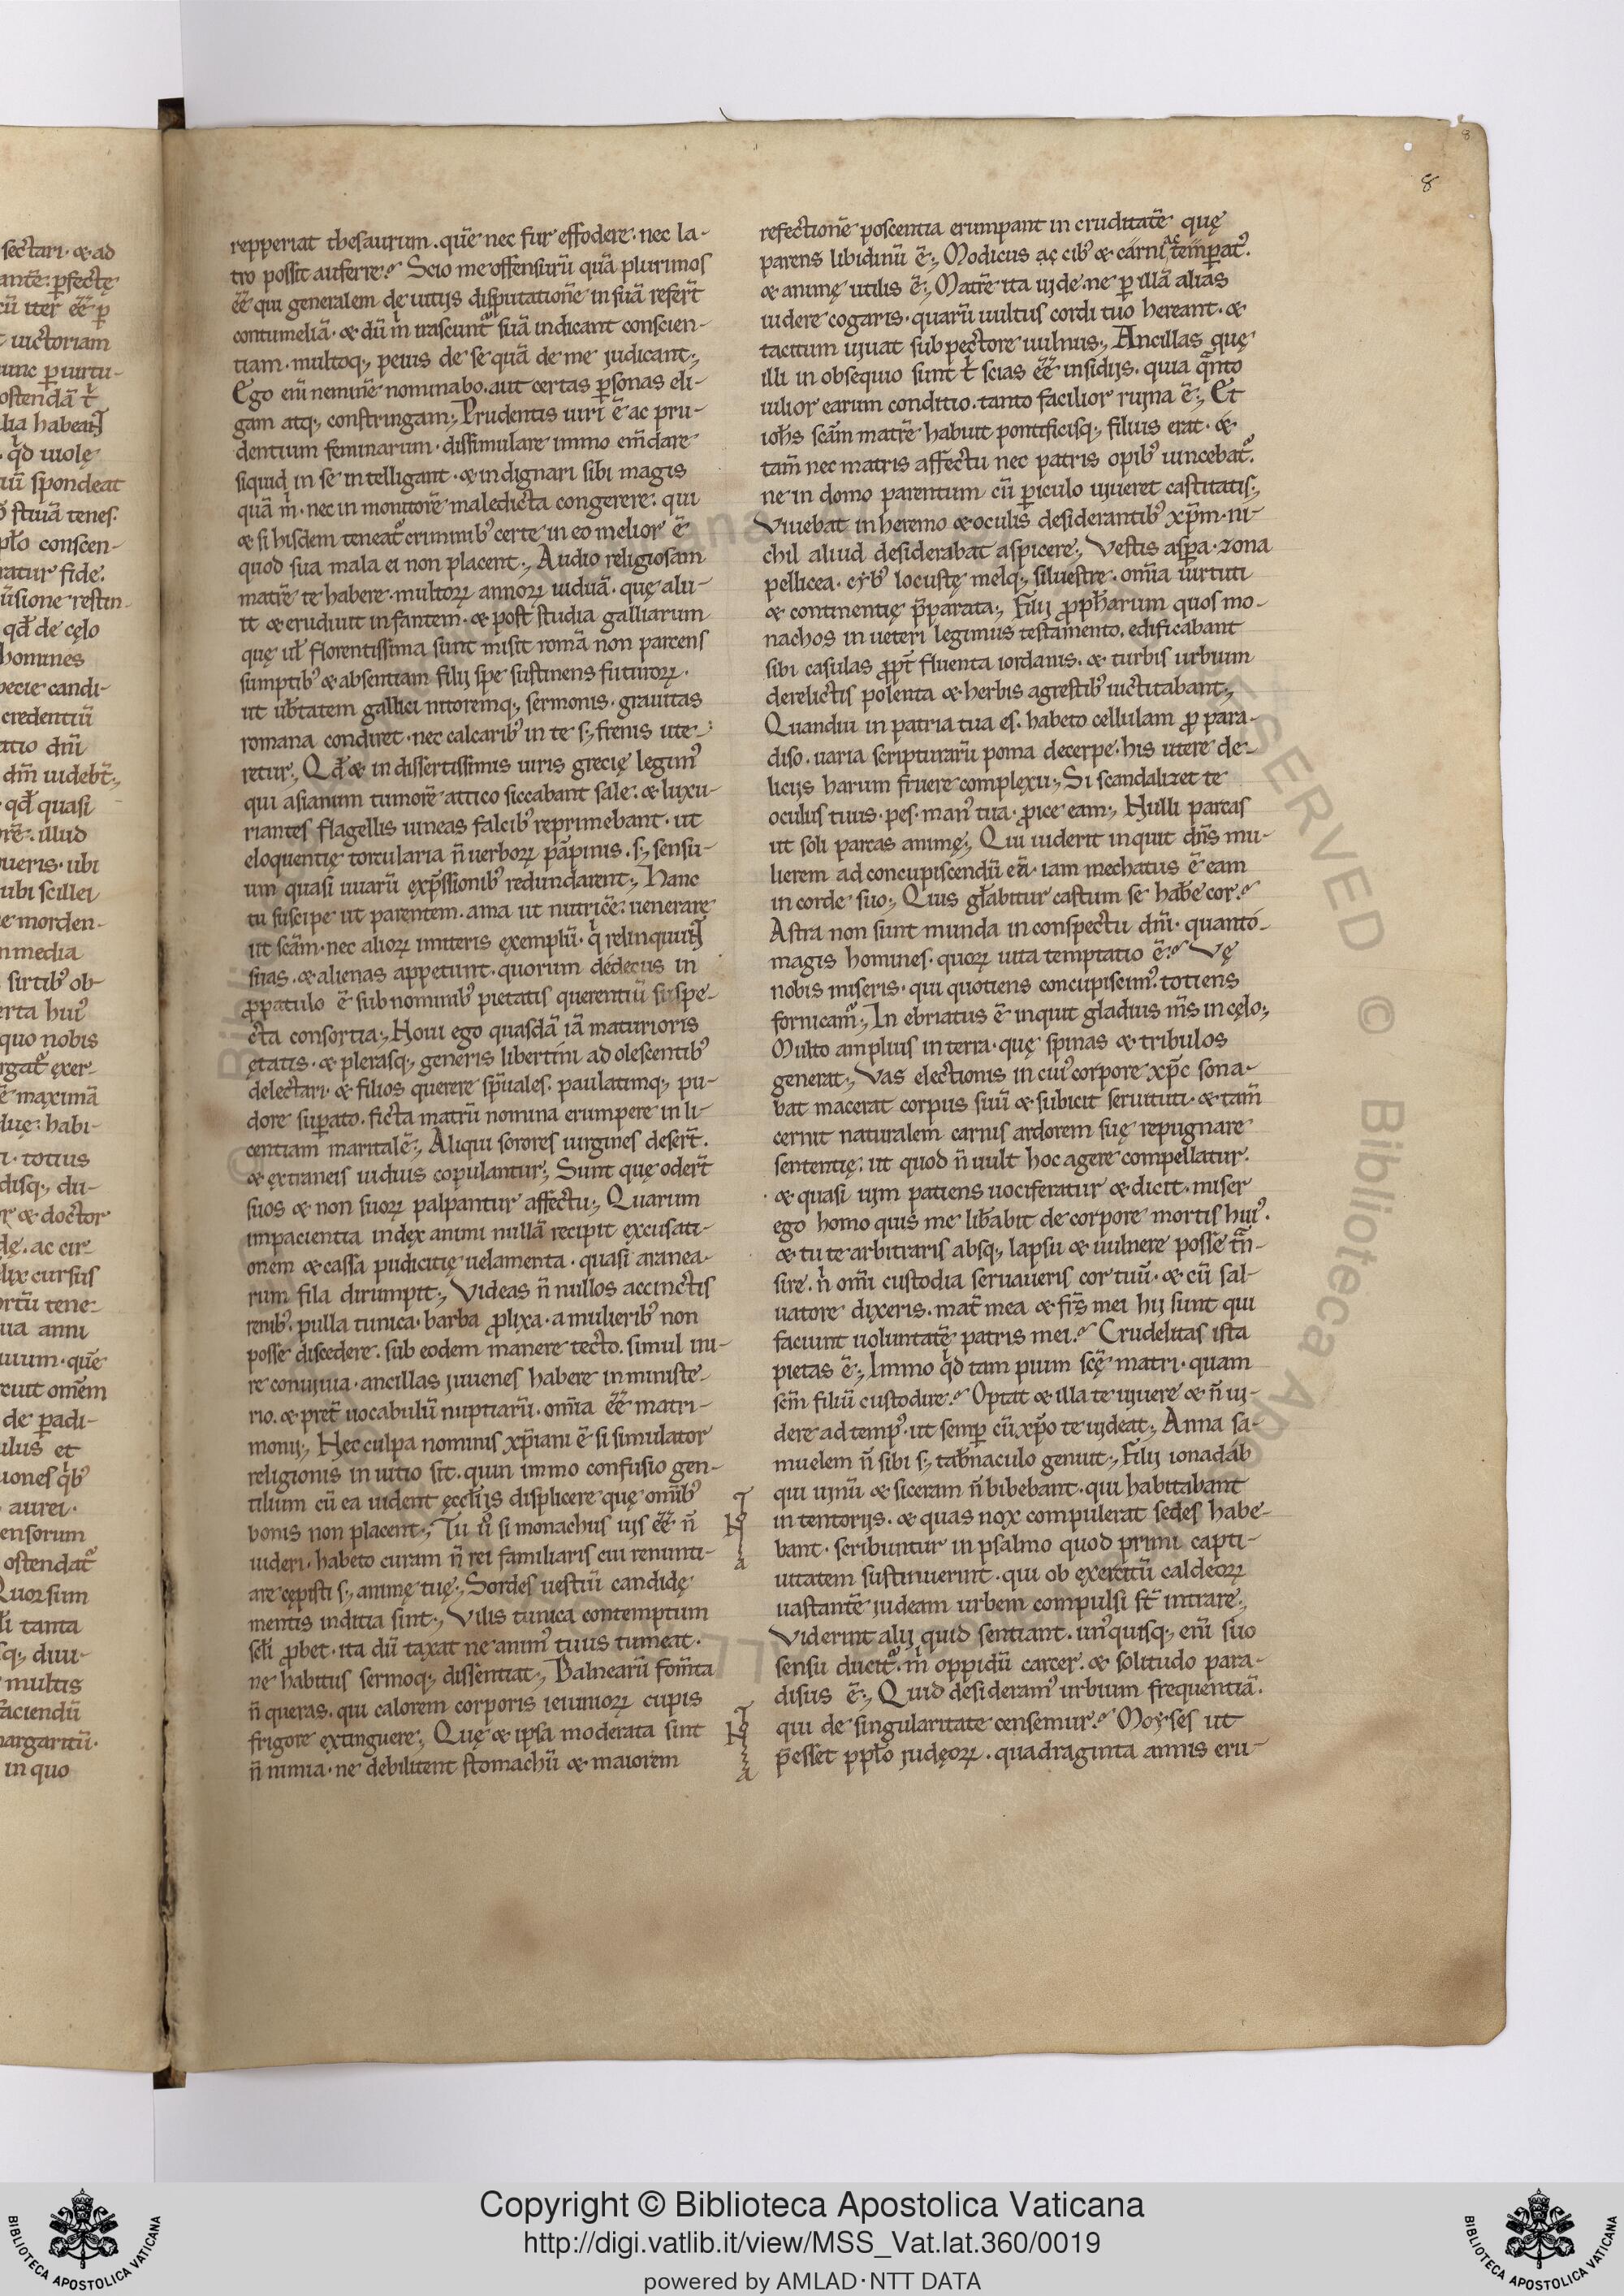 repperiat thesaurum. quē nec fur effodere. nec la-
tro possit auferre? Scio me offensurū quā plurimos
eē̄ qui generalem de uitijs disputationē in suā refert̄
contumeliā. & dū m̥ irascunt᷑ suā indicant conscien-
tiam. multoq; peius de se quā de me judicant;
Ego eni neminē nominabo. aut certas ꝑsonas eli-
gam atq; constringam; Prudentis uiri ē ac pru-
dentium feminarum. dissimulare immo em̄dare
siquid in se intelligant. & indignari sibi magis
quā m̥. nec in monitorē maledicta congerere. qui
& si hisdem teneat᷑ criminib; certe in eo melior ē
quod sua mala ei non placent; Audio religiosam
matrē te habere. multoꝝ annoꝝ uiduā. quę alu-
it & erudiuit infantem. & post studia galliarum
quę ul̄ florentissima sunt misit romā non parcens
sumptib; & absentiam filij spe sustinens futuroꝝ.
ut ub̄tatem gallici nitoremq; sermonis. grauitas
romana condiret. nec calcarib; in te s; frenis ute-
retur; Qd̄ & in dissertissimis uiris grecię legim᾿
qui asianum tumorē attico siccabant sale. & luxu-
riantes flagellis uineas falcib; reprimebant. ut
eloquentię torcularia n̄ uerboꝝ pāpinis. s; sensu-
um quasi uuarū exp̄ssionib; redundarent; Hanc
tu suscipe ut parentem. ama ut nutricē. uenerare
ut sc̄am. nec alioꝝ imiteris exemplū. q̥ relinquunt
suas. & alienas appetunt. quorum dedecus in
ꝓpatulo ē sub nominib; pietatis querentiū suspe-
cta consortia; Noui ego quasdā iā maturioris
ętatis. & plerasq; generis libertini adolescentib;
delectari. & filios querere sp̄uales. paulatimq; pu-
dore suꝑato. ficta matrū nomina erumpere in li-
centiam maritalē; Aliqui sorores uirgines desert̄.
& extraneis uiduis copulantur; Sunt quę odert̄
suos & non suoꝝ palpantur affectu; Quarum
impacientia index animi nullā recipit excusati-
onem & cassa pudicitię uelamenta. quasi aranea-
rum fila dirumpit; Videas n̄nullos accinctis
renib; pulla tunica. barba ꝓlixa. a mulierib; non
posse discedere. sub eodem manere tecto. simul ini-
re conuiuia. ancillas juuenes habere in ministe-
rio. & pret̄ uocabulū nuptiarū. om̄ia eē̄ matri-
monij; Nec culpa nominis xp̄iani ē si simulator
religionis in uitio sit. quin immo confusio gen-
tilium cū ea uident ęccl̄ijs displicere quę om̄ib;
bonis non placent; Tu ů si monachus uis eē̄ n̄
uideri. habeto curam n̄ rei familiaris cui renunti-
are cepisti s; animę tuę; Sordes uestiū candidę
mentis inditia sint; Vilis tunica contemptum
sc̄li ꝓbet. ita dū taxat ne anim᾿ tuus tumeat.
ne habitus sermoq; dissentiat; Balnearū fom̄ta
n̄ queras. qui calorem corporis ieiunioꝝ cupis
frigore extinguere; Quę & ipsa moderata sint
n̄ nimia. ne debilitent stomachū & maiorem
refectionē poscentia erumpant in cruditatē quę
parens libidinū ē; Modicus ac cib; & carni ac temꝑat᾿.
& animę utilis ē; Matrē ita uide. ne ꝑ illā alias
uidere cogaris. quarū uultus cordi tuo hereant. &
tacitum uiuat sub pectore uulnus; Ancillas quę
illi in obsequio sunt t̥ scias eē̄ insidijs. quia q̄nto
uilior earum conditio. tanto facilior ruina ē; Et
ioh̄s sc̄am matrē habuit pontificisq; filius erat. &
tam̄ nec matris affectu nec patris opib; uincebat᷑.
ne in domo parentum cū ꝑiculo uiueret castitatis;
Viuebat in heremo & oculis desiderantib; xp̄m. ni-
chil aliud desiderabat aspicere; Vestis asꝑa. zona
pellicea. cyb; locustę melq; siluestre. om̄ia uirtuti
& continentię p̄parata; Filij ꝓph̄arum quos mo-
nachos in ueteri legimus testamento. edificabant
sibi casulas ꝓpt̄ fluenta iordanis. & turbis urbium
derelictis polenta & herbis agrestib; uictitabant;
Quandiu in patria tua es. habeto cellulam ꝓ para-
diso. uaria scripturarū poma decerpe. his utere de-
licijs harum fruere complexu; Si scandalizet te
oculus tuus. pes. man᾿ tua. ꝓice eam; Nulli parcas
ut soli parcas animę; Qui uiderit inquit dn̄s mu-
lierem ad concupiscendū eā. iam mechatus ē eam
in corde suo; Quis gl̄abitur castum se hab̄e cor?
Astra non sunt munda in conspectu dn̄i. quanto
magis homines. quoꝝ uita temptatio ē? Vę
nobis miseris. qui quotiens concupiscim᾿. totiens
fornicam᾿; Inebriatus ē inquit gladius m̄s in cęlo;
Multo amplius in terra. quę spinas & tribulos
generat; Vas electionis in cui᾿ corpore xp̄c sona-
bat macerat corpus suū & subicit seruituti. & tam̄
cernit naturalem carnis ardorem suę repugnare
sententię. ut quod n̄ uult hoc agere compellatur.
& quasi uim patiens uociferatur & dicit. miser
ego homo quis me lib̄abit de corpore mortis hui᾿.
& tu te arbitraris absq; lapsu & uulnere posse t̄n-
sire. n̥ om̄i custodia seruaueris cor tuū. & cū sal-
uatore dixeris. mat̄ mea & fr̄s mei hij sunt qui
faciunt uoluntatē patris mei? Crudelitas ista
pietas ē; Immo q̥d tam pium sc̄ę matri. quam
sc̄m filiū custodire? Optat & illa te uiuere & n̄ ui-
dere ad temp᾿. ut semꝑ cū xp̄o te uideat; Anna sa-
muelem n̄ sibi s; tab̄naculo genuit; Filij ionadab
qui uinū & siceram n̄ bibebant. qui habitabant
in tentorijs. & quas nox compulerat sedes habe-
bant. scribuntur in psalmo quod primi capti-
uitatem sustinuerint. qui ob exercitū caldeoꝝ
uastantē judeam urbem compulsi st̄ intrare;
Viderint alij quid sentiant. un᾿quisq; eni suo
sensu ducit᷑. m̥ oppidū carcer. & solitudo para-
disus ē; Quid desideram᾿ urbium frequentiā.
qui de singularitate censemur? Moyses ut
p̄esset ppl̄o judęoꝝ. quadraginta annis eru-
8
8
Copyright © Biblioteca Apostolica Vaticana
http://digi.vatlib.it/view/MSS_Vat.lat.360/0019
powered by AMLAD·NTT DATA
BIBLIOTECA APOSTOLICA VATICANA
BIBLIOTECA APOSTOLICA VATICANA